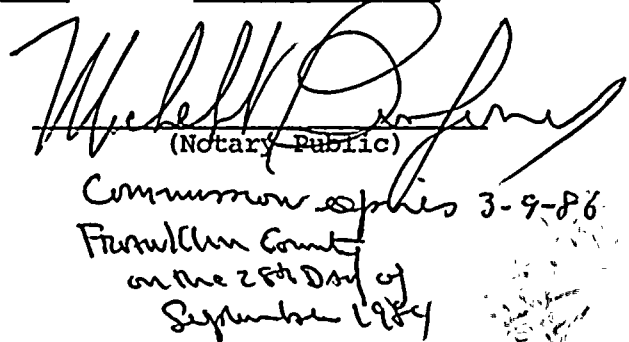 (Notary Public)
Commission expires 3-9-86
Franklin County
on the 28th Day of
September 1984